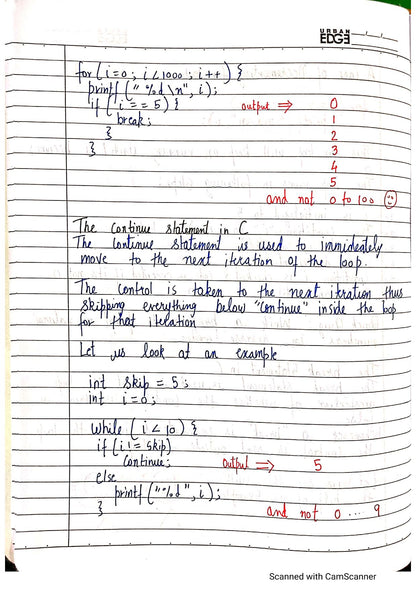 URBAN
EDGE
for (i=0; i<1000; i++) {
printf ("%d \n", i);
if (i == 5) {
break;
}
}
output ⇒ 0
1
2
3
4
5
and not 0 to 100 ☺
The continue statement in C
The continue statement is used to immideately
move to the next iteration of the loop.
The control is taken to the next iteration thus
skipping everything below "continue" inside the loop
for that iteration
Let us look at an example
int skip = 5;
int i=0;
while (i < 10) {
if (i != skip)
continue;
else
printf ("%d", i);
}
output ⇒ 5
and not 0 ... 9
Scanned with CamScanner